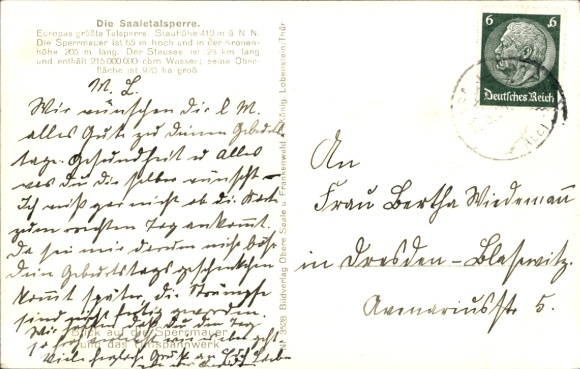 Die Saaletalsperre.
Europas größte Talsperre. Stauhöhe 410 m ü. N. N.
Die Sperrmauer ist 65 m hoch und in der Kronen-
höhe 205 m lang. Der Stausee ist 28 km lang
und enthält 215 000 000 cbm Wasser; seine Ober-
fläche ist 920 ha groß.
M. L.
Wir wünschen dir l. M.
alles Gute zu deinem Geburts
tage. Gesundheit u alles
was du dir selber wünscht –
Ich weiß gar nicht ob die Karte
zum rechten Tag ankommt.
Da sei mir darum nicht böse
Dein Geburtstagsgeschenkchen
kommt später, die Strümpfe
sind nicht fertig geworden.
Wir hoffen daß du den Tag
so froh
Viele herzliche Grüße an Euch Liebe
Blick auf die Sperrmauer
und das Umspannwerk
Nr. 3528 Bildverlag Obere Saale u. Frankenwald König, Lobenstein/Thür
6 6
Deutsches Reich
An
Frau Bertha Wiedemann
in Dresden-Blasewitz.
Avenariusstr 5.